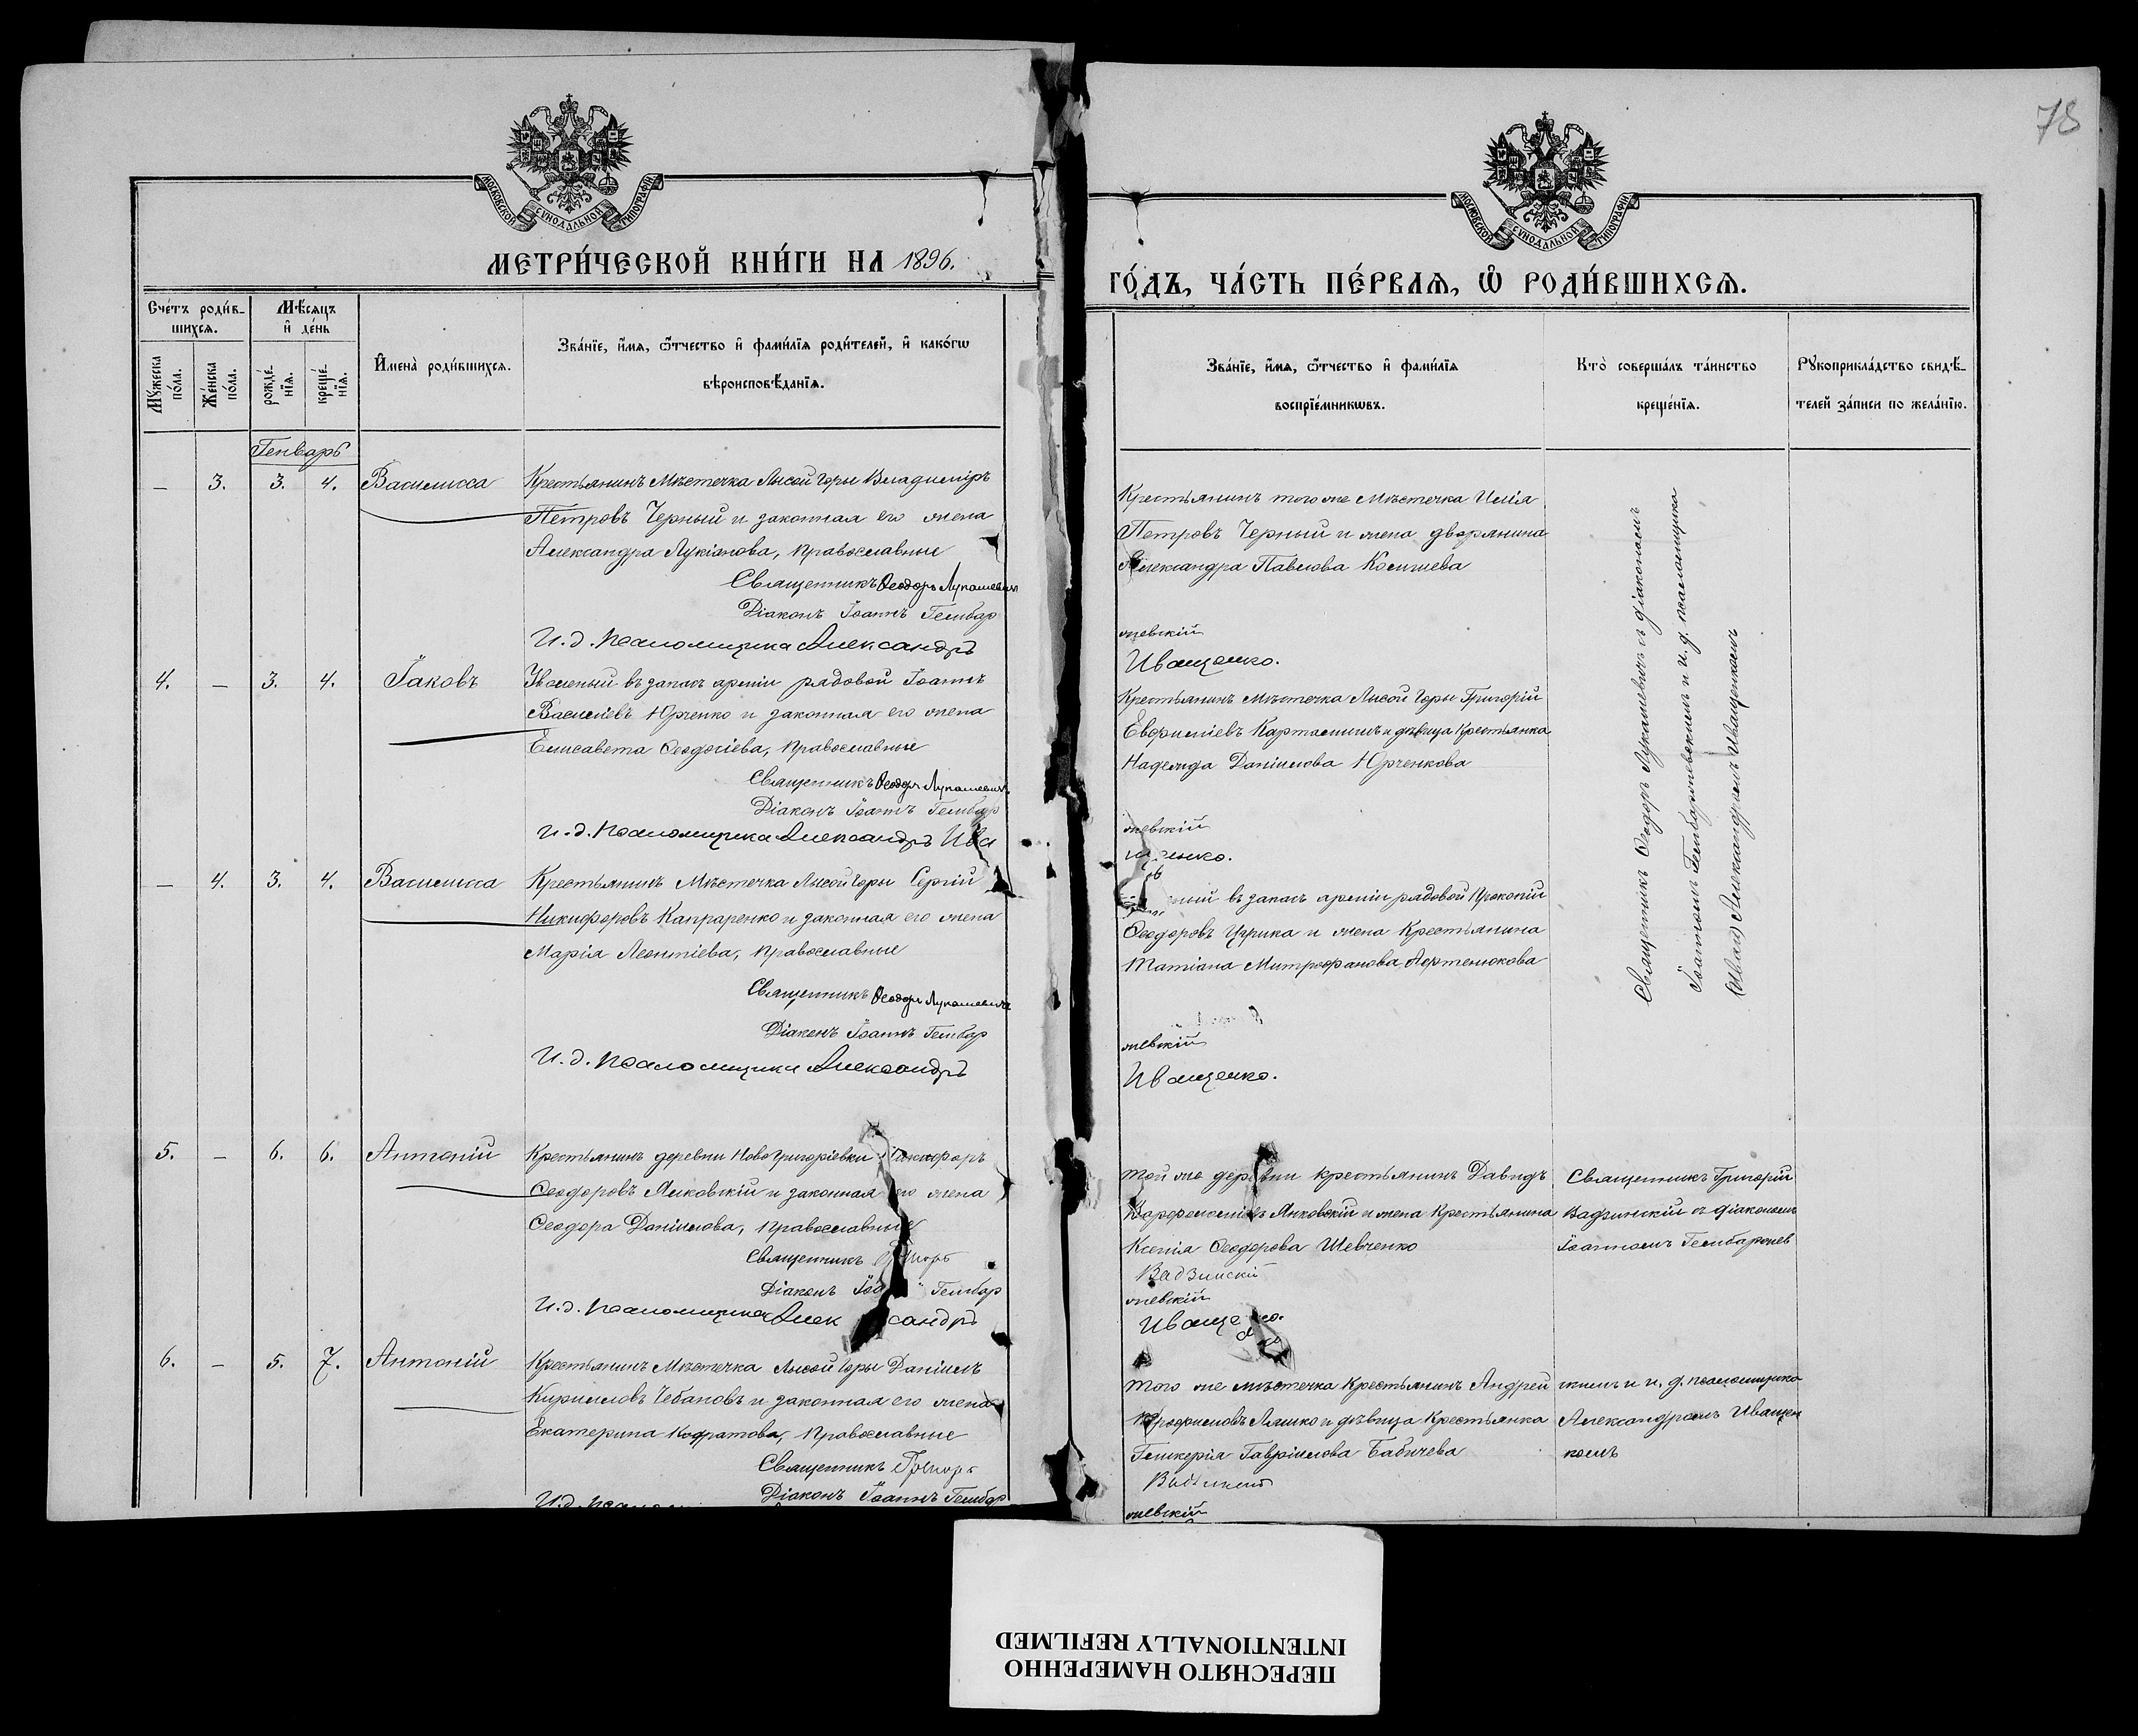 78
МОСКОВСКОЙ СУНОДАЛЬНОЙ ТИПОГРАФІИ
МОСКОВСКОЙ СУНОДАЛЬНОЙ ТИПОГРАФІИ
МЕТРИ́ЧЕСКОЙ КНИ́ГИ НА 1896.
ГО́ДЪ, ЧА́СТЬ ПЕ́РВАЯ, Ѡ РОДИ́ВШИХСЯ.
Сче́тъ роди́в-
шихся.
Мѣ́сяцъ
и҆ де́нь
Мꙋ́жеска
по́ла.
Же́нска
по́ла.
рожде́-
нїя.
креще́-
нїя.
И҆мена̀ роди́вшихся.
Зва́нїе, и҆́мя, ѻ҆́тчество и҆ фами́лїя роди́телей, и҆ како́гѡ
вѣроисповѣ́данїя.
Зва́нїе, и҆́мя, ѻ҆́тчество и҆ фами́лїя
воспрїе́мникѡвъ.
Кто̀ соверша́лъ та́инство
креще́нїя.
Рꙋкоприкла́дство свидѣ́-
телей за́писи по жела́нїю.
Генварь
— 3. 3. 4. Василисса
Крестьянинъ Мѣстечка Лысой Горы Владиміръ
Петровъ Черный и законная его жена
Александра Лукіанова, православные
Священникъ Ѳеодоръ Лукашевичъ
Діаконъ Іоаннъ Гембар
И. д. Псаломщика Александръ
Крестьянинъ того же Мѣстечка Илія
Петровъ Черный и жена дворянина
Александра Павлова
жевскій
Иващенко.
Священникъ Ѳеодоръ Лукашевичъ съ діакономъ
Іоанномъ Гембаржевскимъ и и. д. псаломщика
Александромъ Иващенкомъ
4. — 3. 4. Іаковъ
Уволеный въ запасъ арміи рядовой Іоаннъ
Василіевъ Юрченко и законная его жена
Елисавета Ѳеодосіева, православные
Священникъ Ѳеодоръ Лукашевичъ
Діаконъ Іоаннъ Гембар
И. д. Псаломщика Александръ Ива
Крестьянинъ Мѣстечка Лысой Горы Григорій
и дѣвица крестьянка
Надежда Даніилова Юрченкова
жевскій
щенко.
— 4. 3. 4. Василисса
Крестьянинъ Мѣстечка Лысой Горы Сергій
Никифоровъ Капраренко и законная его жена
Марія Леонтіева, православные
Священникъ Ѳеодоръ Лукашевичъ
Діаконъ Іоаннъ Гембар
И. д. Псаломщика Александръ
ный въ запасъ арміи рядовой Прокопій
Ѳеодоровъ Цурика и жена Крестьянина
Татіана Митрофанова
жевскій
Иващенко.
5. — 6. 6. Антоній
Крестьянинъ деревни НовоГригоріевки
Ѳеодоровъ и законная его жена
Ѳеодора Даніилова, православные
Священникъ
Діаконъ Гембар
И. д. Псаломщика Александръ
Той же деревни крестьянинъ Давидъ
Янковскій и жена Крестьянина
Ксенія Ѳеодорова Шевченко
Вадзинскій
жевскій
Священникъ Григорій
Вадзинскій съ діакономъ
Іоанномъ Гембаржев
6. — 5. 7. Антоній
Крестьянинъ Мѣстечка Лысой Горы Даніилъ
Кирилловъ Чебановъ и законная его жена
Екатерина Кодратова, православные
Священникъ Григорій
Діаконъ Іоаннъ Гембар
И. д.
Того же мѣстечка Крестьянинъ Андрей
Ляшко и дѣвица Крестьянка
Гликерія Гавріилова Бабичева
жевскій
скимъ и и. д. псаломщика
Александромъ Иващен
комъ
ПЕРЕСНЯТО НАМЕРЕННО
INTENTIONALLY REFILMED